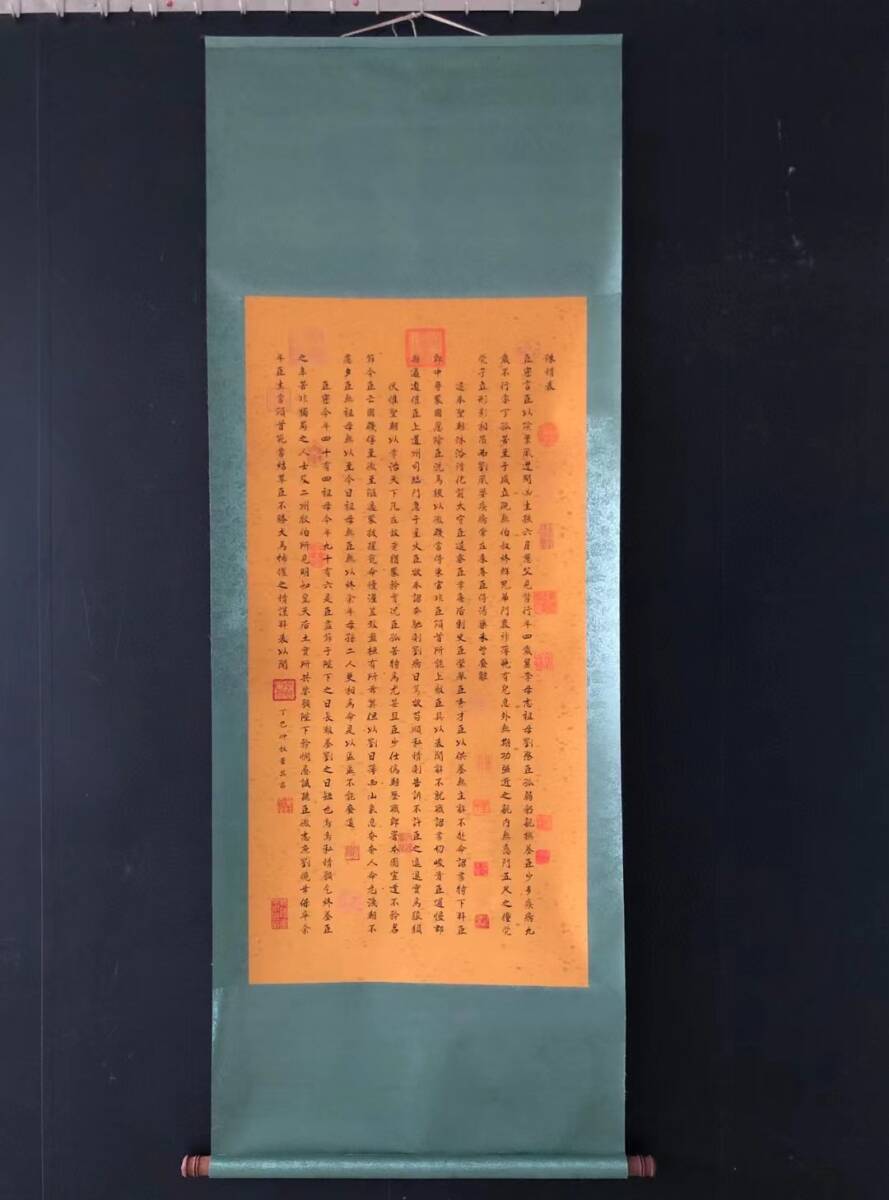 陳情表
臣密言臣以險釁夙遭閔凶生孩六月慈父見背行年四歲舅奪母志祖母劉愍臣孤弱躬親撫養臣少多疾病九
歲不行零丁孤苦至于成立既無伯叔終鮮兄弟門衰祚薄晚有兒息外無期功強近之親內無應門五尺之僮煢
煢孑立形影相吊而劉夙嬰疾病常在床蓐臣侍湯藥未曾廢離
逮奉聖朝沐浴清化前太守臣逵察臣孝廉后刺史臣榮舉臣秀才臣以供養無主辭不赴命詔書特下拜臣
郎中尋蒙國恩除臣洗馬猥以微賤當侍東宮非臣隕首所能上報臣具以表聞辭不就職詔書切峻責臣逋慢郡
縣逼迫催臣上道州司臨門急于星火臣欲奉詔奔馳則劉病日篤欲苟順私情則告訴不許臣之進退實為狼狽
伏惟聖朝以孝治天下凡在故老猶蒙矜育況臣孤苦特為尤甚且臣少仕偽朝歷職郎署本圖宦達不矜名
節今臣亡國賤俘至微至陋過蒙拔擢寵命優渥豈敢盤桓有所希冀但以劉日薄西山氣息奄奄人命危淺朝不
慮夕臣無祖母無以至今日祖母無臣無以終余年母孫二人更相為命是以區區不能廢遠
臣密今年四十有四祖母今年九十有六是臣盡節于陛下之日長報養劉之日短也烏鳥私情願乞終養臣
之辛苦非獨蜀之人士及二州牧伯所見明知皇天后土實所共鑒願陛下矜憫愚誠聽臣微志庶劉僥幸保卒余
年臣生當隕首死當結草臣不勝犬馬怖懼之情謹拜表以聞
丁巳仲秋董其昌